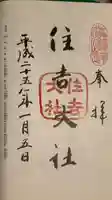 奉拝
住吉大社
住吉大社
平成二十五年一月五日